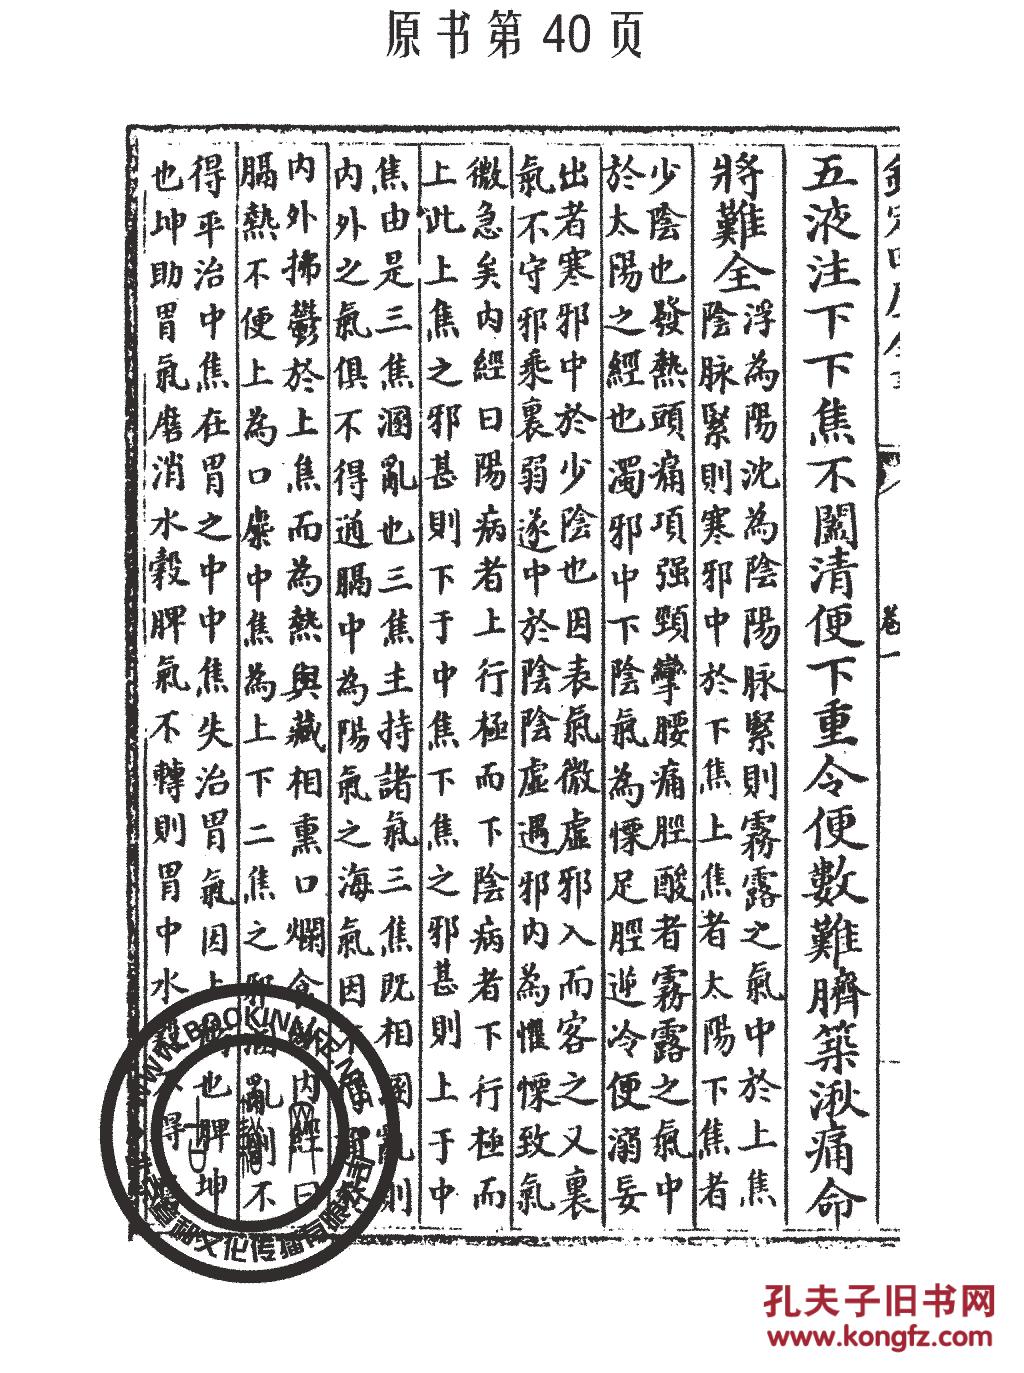 原书第 40 页
卷一
五液注下下焦不闔清便下重令便數難臍築湫痛命
將難全
浮為陽沈為陰陽脉緊則霧露之氣中於上焦
陰脉緊則寒邪中於下焦上焦者太陽下焦者
少陰也發熱頭痛項强頸攣腰痛脛酸者霧露之氣中
於太陽之經也濁邪中下陰氣為慄足脛逆冷便溺妄
出者寒邪中於少陰也因表氣微虛邪入而客之又裏
氣不守邪乘裏弱遂中於陰陰虛遇邪內為懼慄致氣
微急矣內經曰陽病者上行極而下陰病者下行極而
上此上焦之邪甚則下于中焦下焦之邪甚則上于中
焦由是三焦溷亂也三焦主持諸氣三焦既相溷亂則
內外之氣俱不得通膈中為陽氣之海氣因
內外拂鬱於上焦而為熱與藏相熏口爛食 內經曰
膈熱不便上為口糜中焦為上下二焦之邪溷亂則不
得平治中焦在胃之中中焦失治胃氣因 也脾坤
也坤助胃氣磨消水穀脾氣不轉則胃中水穀不得
WWW.BOOKINMFEN
文化传播有限公司
孔夫子旧书网
www.kongfz.com